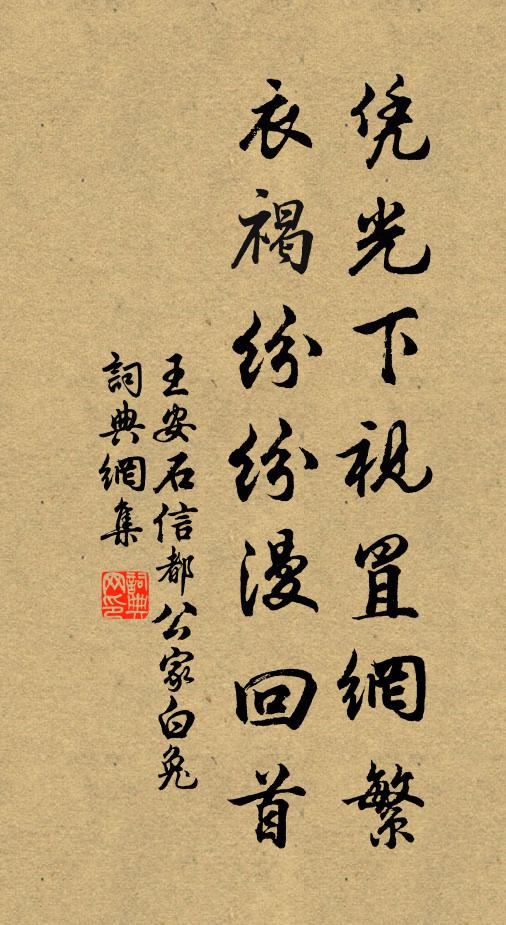 凭光下視罝網繁
衣褐紛紛漫回首
王安石信都公家白兔
詞典網集
詞典
网印